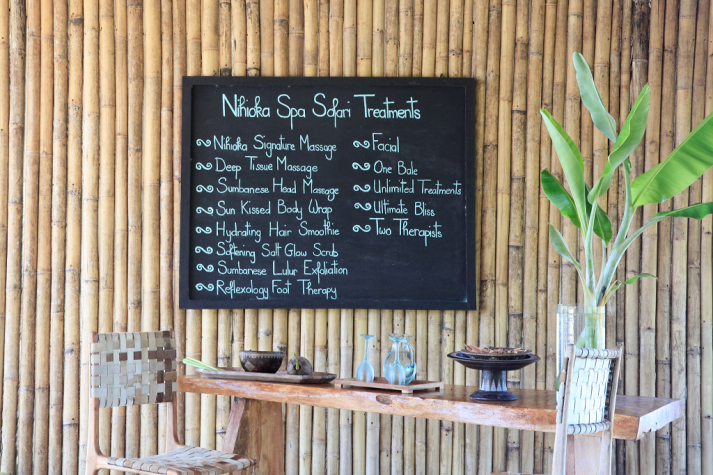 Nihioka Spa Safari Treatments
Nihioka Signature Massage
Deep Tissue Massage
Sumbanese Head Massage
Sun Kissed Body Wrap
Hydrating Hair Smoothie
Softening Salt Glow Scrub
Sumbanese Lulur Exfoliation
Reflexology Foot Therapy
Facial
One Bale
Unlimited Treatments
Ultimate Bliss
Two Therapists